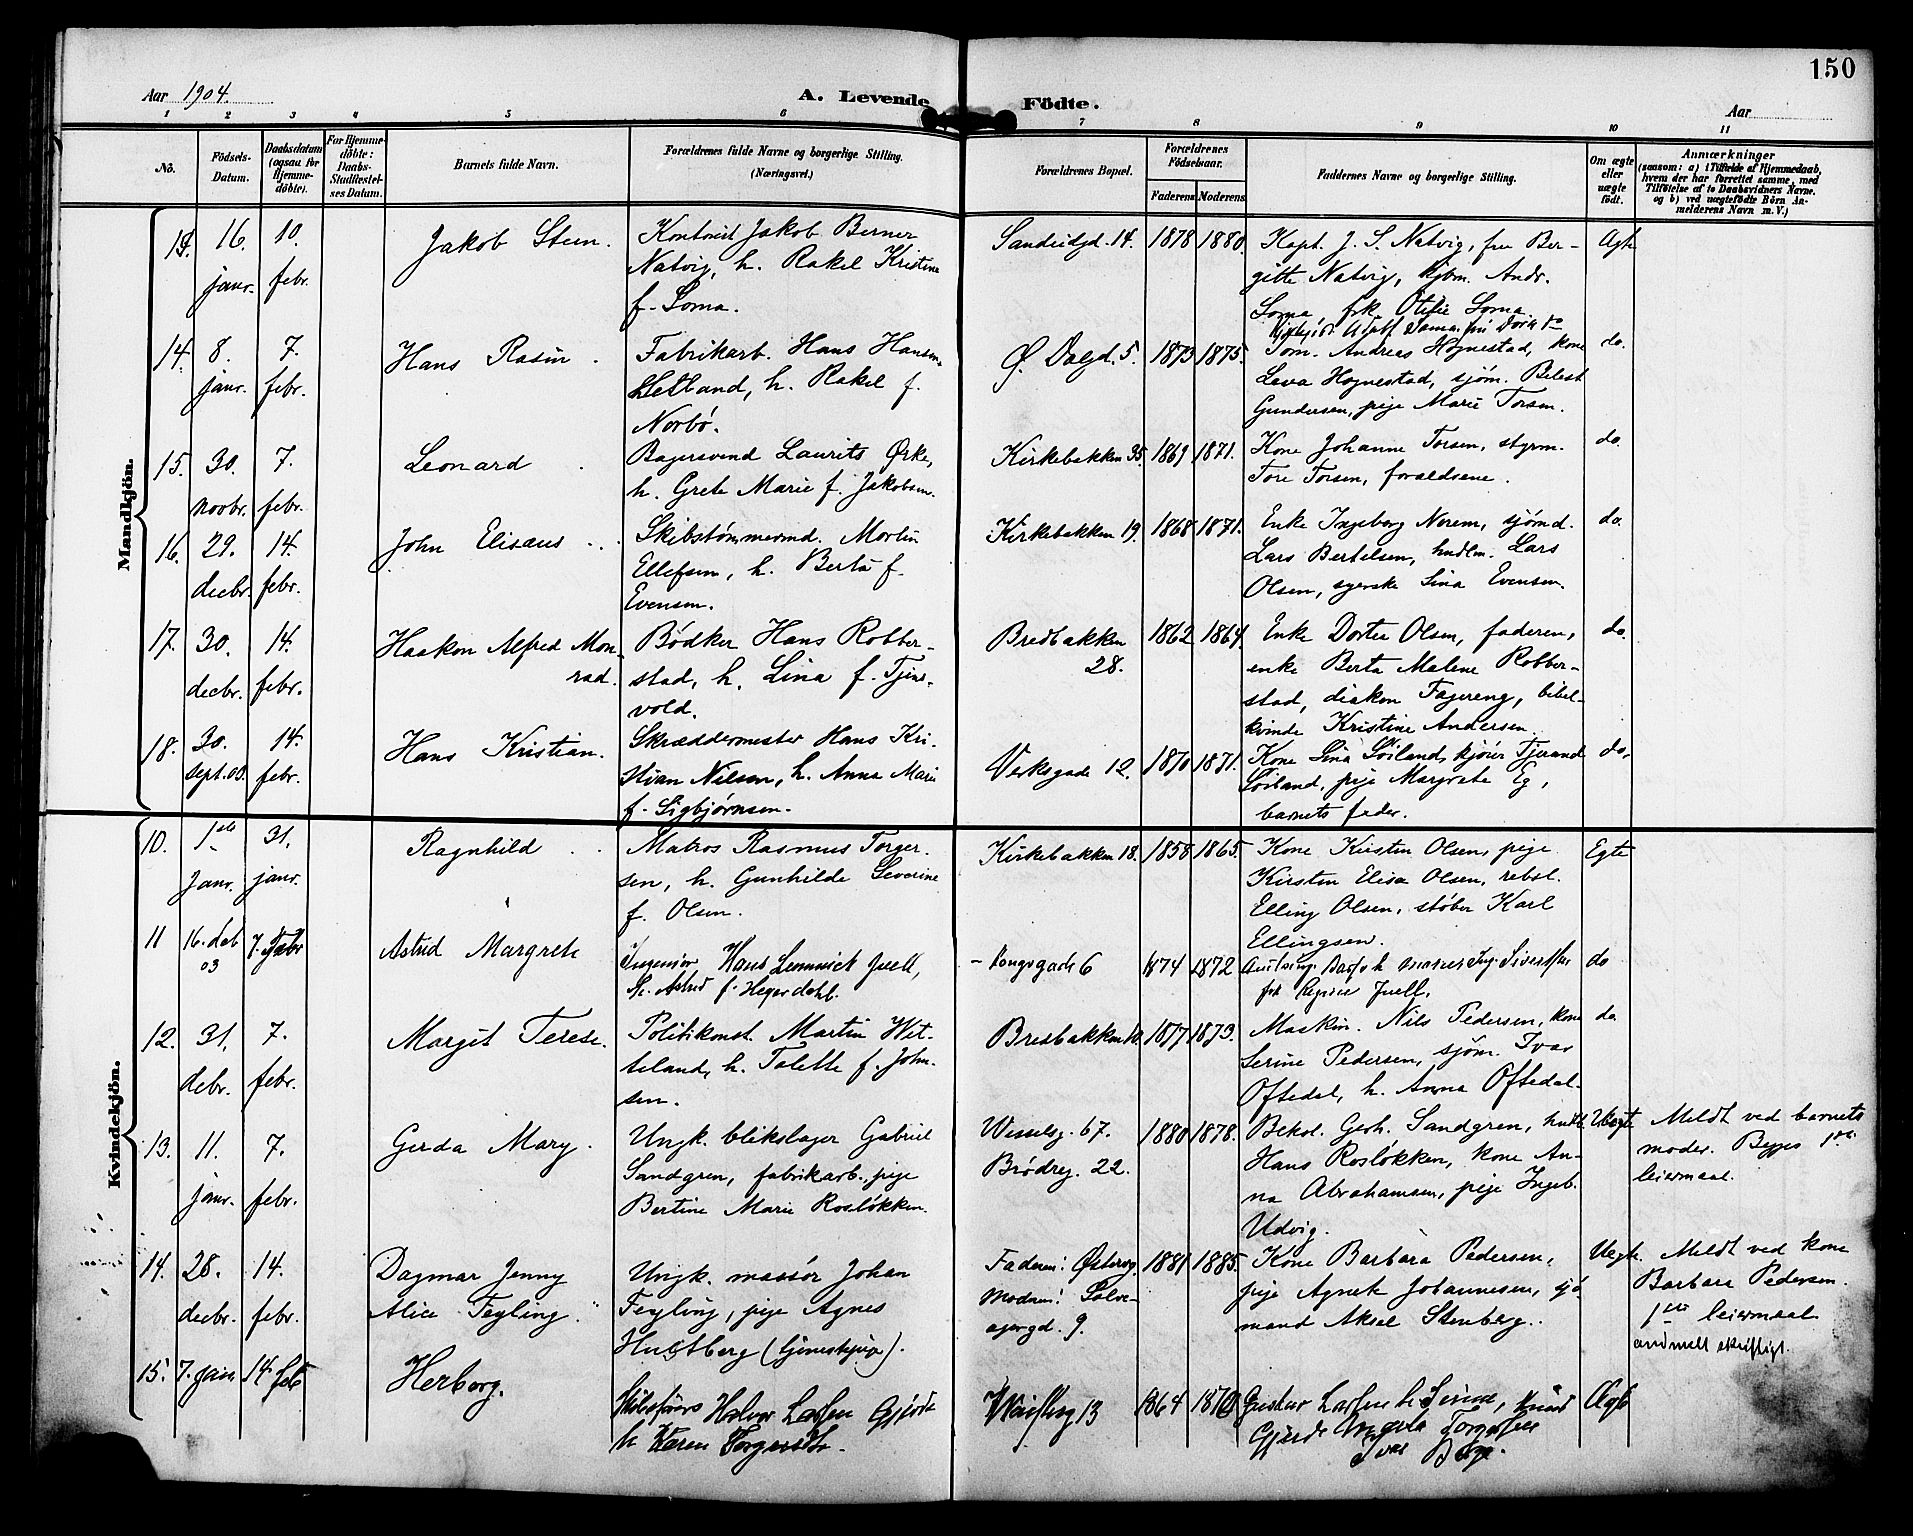 150
Aar 1904.
A. Levende Födte.
Aar
1 2 3 4 5 6 7 8 9 10 11
No.
Födsels-Datum.
Daabsdatum (ogsaa for Hjemmedöbte).
For Hjemmedöbte: Daabs-Stadfæstelses Datum.
Barnets fulde Navn.
Forældrenes fulde Navne og borgerlige Stilling. (Næringsvei.)
Forældrenes Bopæl.
Forældrenes Födselsaar.
Faderens Moderens
Faddernes Navne og borgerlige Stilling.
Om ægte eller uægte födt.
Anmærkninger
(saasom: a) i Tilfælde af Hjemmedaab, hvem der har forrettet samme, med Tilföielse af to Daabsvidners Navne. og b) ved uægtefödte Börn Anmelderens Navn m. V.)
Mandkjön.
16. janr. 10. febr.
Jakob Steen.
Kontorist Jakob Berner
Natvig, h. Rakel Kristine
f. Soma.
14. 1878 1880.
Kapt. J. S. Natvig, fru Ber-
gitte Natvig, kjbm. Andr.
Soma, frk. Otilie Soma
Ægte
14. 8. janr. 7. febr.
Hans Rasin.
Fabrikarb. Hans Hansen
Hetland, h. Rakel f.
Norbø.
Ø. Dalgd. 5. 1873 1875.
Tøm. Andreas Hognestad, kone
Lava Hognestad, sjøm. Belest
Gundersen, pige Marie Torsen.
do.
15. 30. novbr. 7. febr.
Leonard
Bagersvend Laurits Ørke,
h. Grete Marie f. Jakobsen.
Kirkebakken 35. 1869 1871.
Kone Johanne Torsen, styrm.
Tore Torsen, forældrene.
do.
16. 29. decbr. 14. febr.
John Elisæus
Skibstømmermd. Martin
Ellefsen, h. Berta f.
Evensen.
Kirkebakken 19. 1868 1871.
Enke Ingeborg Norem, sjømd.
Lars Bertelsen, hndlm. Lars
Olsen, syerske Sina Evensen.
do.
17. 30. decbr. 14. febr.
Haakon Alfred Mon-
rad.
Bødker Hans Robber-
stad, h. Lina f. Tjens-
vold.
Bredbakken
28.
1862 1864.
Enke Dortea Olsen, faderen,
enke Berta Malene Robber-
stad, diakon Fagereng, bibel-
kvinde Kristine Andersen
do.
18. 30. sept. 03. 14. febr.
Hans Kristian.
Skræddermester Hans Kri-
stian Nilsen, h. Anna Marie
f. Sigbjørnsen.
Verksgade 12. 1870 1871.
Kone Sina Søiland, kjører Tjerand
Søiland, pige Margrete Eg,
barnets fader.
do.
Kvindekjön.
10. 1ste Janr. 31. janr.
Ragnhild
Matros Rasmus Torger-
sen, h. Gunhilde Severine
f. Olsen.
Kirkebakken 18. 1858 1865.
Kone Kirsten Olsen, pige
Kirsten Elisa Olsen, rebsl.
Elling Olsen, støber Karl
Ellingsen.
Egte
11 16. deb 03 7. Febr
Astrid Margrete
Ingeniør Hans Lemmick Juell,
h. Astrid f. Hegerdahl.
Kongsgade 6 1874 1872
frk Juell.
do
12. 31. debr. 7. febr.
Margit Terese.
Politikonst. Martin Wit-
teland, h. Tolette f. John-
sen.
Bredbakken 10. 1877 1873.
Maskin. Nils Pedersen, kone
Serine Pedersen, sjøm. Ivar
Oftedal, h. Anna Oftedal.
do.
13. 11. janr. 7. febr.
Gerda Mary.
Ungk. blikslager Gabriel
Sandgren, fabrikarb. pige
Bertine Marie Rosløkken.
Wesselsg. 67.
Brødreg. 22.
1880 1878.
Bekol. Gerh. Sandgren,
Hans Rosløkken, kone An-
na Abrahamsen, pige Ingeb.
Udvig.
Uægte
Meldt ved barnets
moder. Begges 1ste
leiermaal.
14. 28. decbr. 14. febr.
Dagmar Jenny
Alice Feyling
Ungk. massør Johan
Feyling, pige Agnes
Hustberg (tjenestepige).
Faderen: Østervg.
Moderen: Sølve-
agergd. 9.
1881 1885.
Kone Barbara Pedersen,
pige Agnete Johannesen, sjø-
mand Aksel Stenberg.
Uægte.
Meldt ved kone
Barbara Pedersen.
1ste leiermaal
anmeldt skriftligt.
15. 7. jan. 14. feb
Herborg.
Skibsfører Halvor Larsen Gjerde
h Karen Torgersdtr.
13 1864 1870
Gustav Larsen h. Serine, Knud
Gjerde Torgersen
Ivar
Ægte